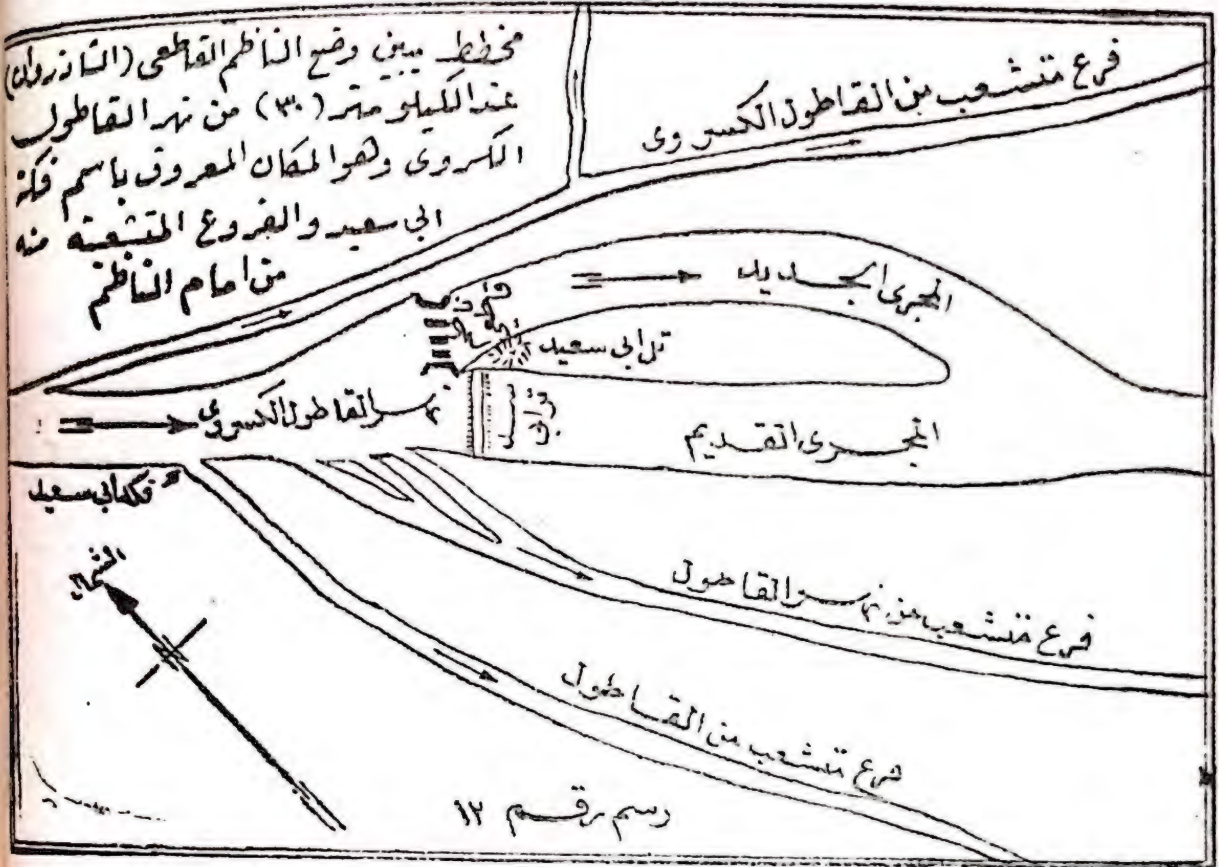 مخطط يبين وضع الناظم القاطعي (الشاذروان)
عند الكيلو متر (٣٠) من نهر القاطول
الكسروي وهو المكان المعروف باسم فكة
ابي سعيد والفروع المتشعبة منه
من امام الناظم
فرع متشعب من القاطول الكسروي
المجرى الجديد
تل ابي سعيد
نهر القاطول الكسروي
ترابي
المجرى القديم
فكة ابي سعيد
الشمال
فرع متشعب من نهر القاطول
فرع متشعب من القاطول
رسم رقم ١٢